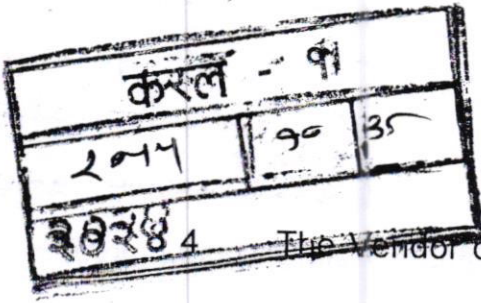 करलं - १
१० 35
२०२४
4 The Vendor